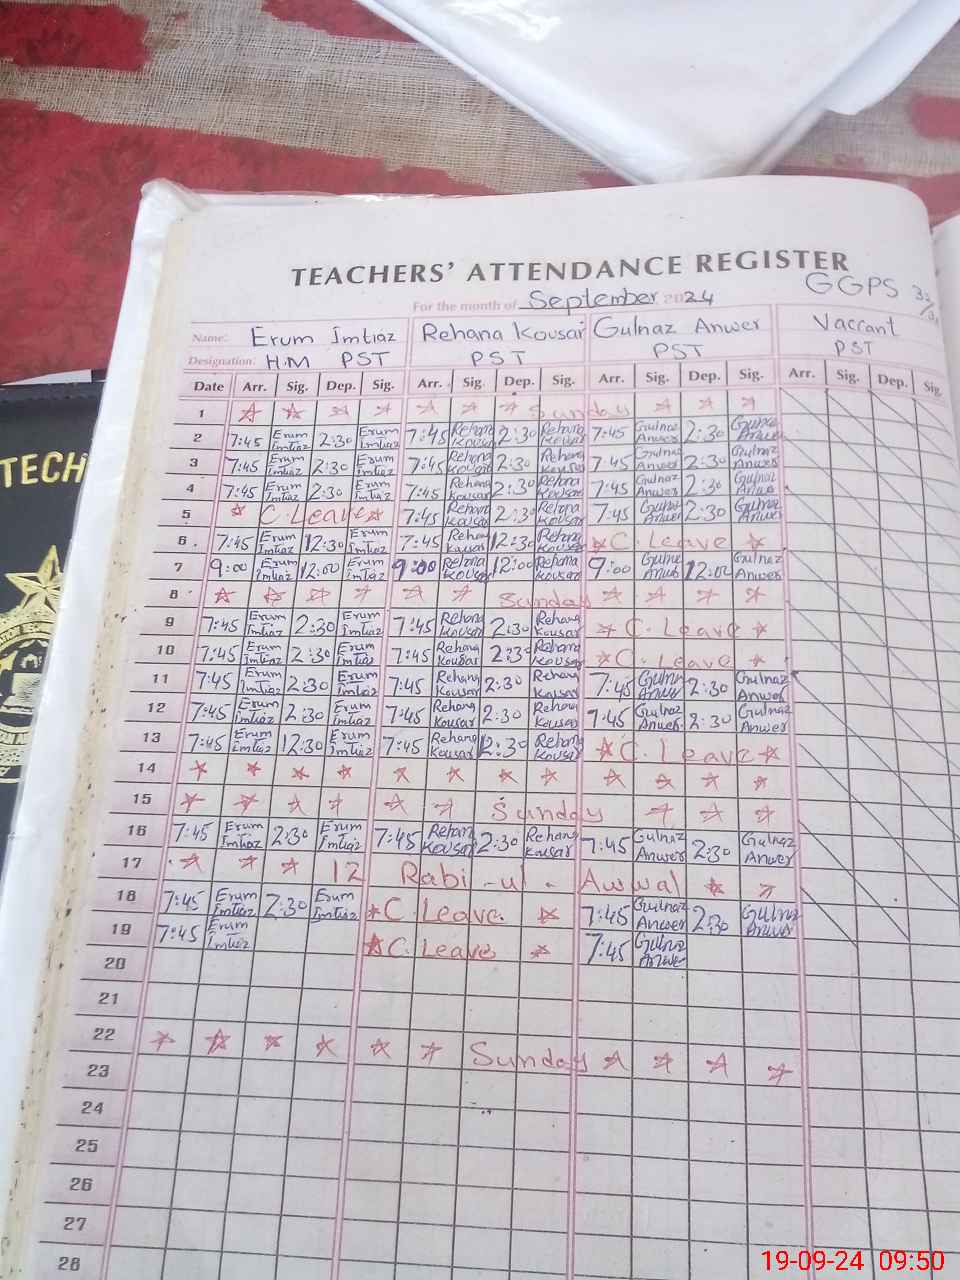 TEACHERS' ATTENDANCE REGISTER
For the month of September 2024 GGPS
Name: Erum Imtiaz Rehana Kousar Gulnaz Anwer Vaccant
Designation: H.M PST PST PST PST
Date Arr. Sig. Dep. Sig. Arr. Sig. Dep. Sig. Arr. Sig. Dep. Sig. Arr. Sig. Dep. Sig.
1 Sunday
2 7:45 Erum Imtiaz 2:30 Erum Imtiaz 7:45 Rehana Kousar 2:30 Rehana Kousar 7:45 Gulnaz Anwer 2:30 Gulnaz Anwer
3 7:45 Erum Imtiaz 2:30 Erum Imtiaz 7:45 Rehana Kousar 2:30 Rehana Kousar 7:45 Gulnaz Anwer 2:30 Gulnaz Anwer
4 7:45 Erum Imtiaz 2:30 Erum Imtiaz 7:45 Rehana Kousar 2:30 Rehana Kousar 7:45 Gulnaz Anwer 2:30 Gulnaz Anwer
5 C.Leave 7:45 Rehana Kousar 2:30 Rehana Kousar 7:45 Gulnaz Anwer 2:30 Gulnaz Anwer
6 7:45 Erum Imtiaz 12:30 Erum Imtiaz 7:45 Rehana Kousar 12:30 Rehana Kousar C. Leave
7 9:00 Erum Imtiaz 12:00 Erum Imtiaz 9:00 Rehana Kousar 12:00 Rehana Kousar 9:00 Gulnaz Anwer 12:00 Gulnaz Anwer
8 Sunday
9 7:45 Erum Imtiaz 2:30 Erum Imtiaz 7:45 Rehana Kousar 2:30 Rehana Kousar C. Leave
10 7:45 Erum Imtiaz 2:30 Erum Imtiaz 7:45 Rehana Kousar 2:30 Rehana Kousar C. Leave
11 7:45 Erum Imtiaz 2:30 Erum Imtiaz 7:45 Rehana Kousar 2:30 Rehana Kousar 7:45 Gulnaz Anwer 2:30 Gulnaz Anwer
12 7:45 Erum Imtiaz 2:30 Erum Imtiaz 7:45 Rehana Kousar 2:30 Rehana Kousar 7:45 Gulnaz Anwer 2:30 Gulnaz Anwer
13 7:45 Erum Imtiaz 12:30 Erum Imtiaz 7:45 Rehana Kousar 12:30 Rehana Kousar C. Leave
14
15 Sunday
16 7:45 Erum Imtiaz 2:30 Erum Imtiaz 7:45 Rehana Kousar 2:30 Rehana Kousar 7:45 Gulnaz Anwer 2:30 Gulnaz Anwer
17 12 Rabi-ul-Awwal
18 7:45 Erum Imtiaz 2:30 Erum Imtiaz C. Leave 7:45 Gulnaz Anwer 2:30 Gulnaz Anwer
19 7:45 Erum Imtiaz C. Leave 7:45 Gulnaz Anwer
20
21
22 Sunday
23
24
25
26
27
28
TECH
19-09-24 09:50